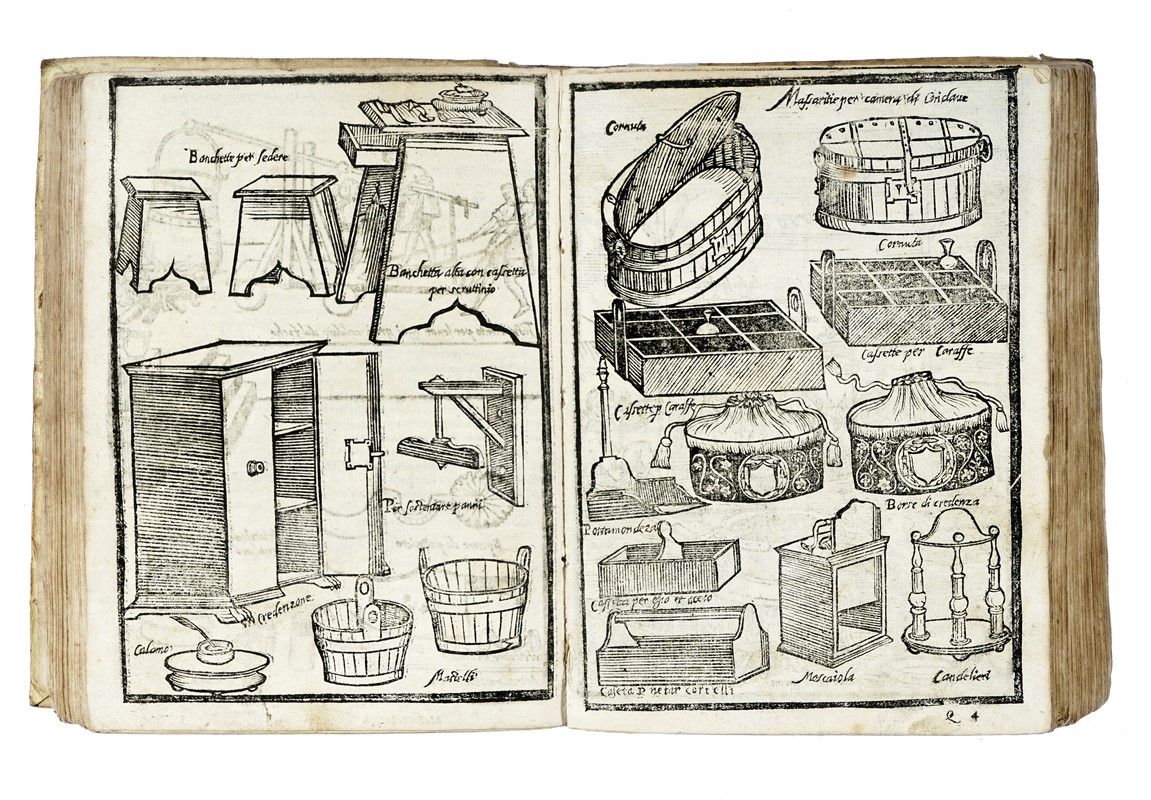 Banchette per sedere
Banchetta alta con cassetta
per scruttinio
Per sostentare panni
Credenzone
Calamo
Mastelli
Massaritie per camera di Conclave
Cornuta
Cornuta
Cassette per Caraffe
Cassette p Caraffe
Borse di credenza
Portamondeza
Cassetta per oglio et aceto
Caseta p netar cortelli
Moscaiola
Candelieri
Q 4